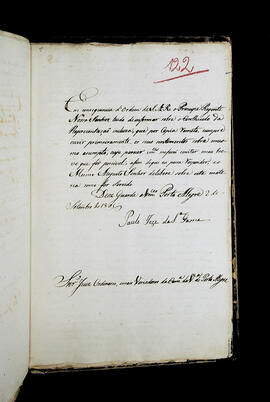 122
Em consequencia d'Ordem de S. A. R. o Principe Regente
Nosso Senhor tendo de informar sobre o Contheudo da
Representação incluza, que por Copia remetto, cumpre
ouvir primeiramente os seus sentimentos sobre esse
assumpto, cujo parecer me inviará com a mais bre-
ve que for possivel; afim de que eu possa responder, e o
Mesmo Augusto Senhor delibere sobre esta materia
como for servido.
Deos Guarde a Porto Alegre 2 de
Setembro de
Paulo Joze da S.ª Gama
Snr.es Juiz Ordinario, e mais Vereadores da Cam.ª da V.ª de Porto Alegre